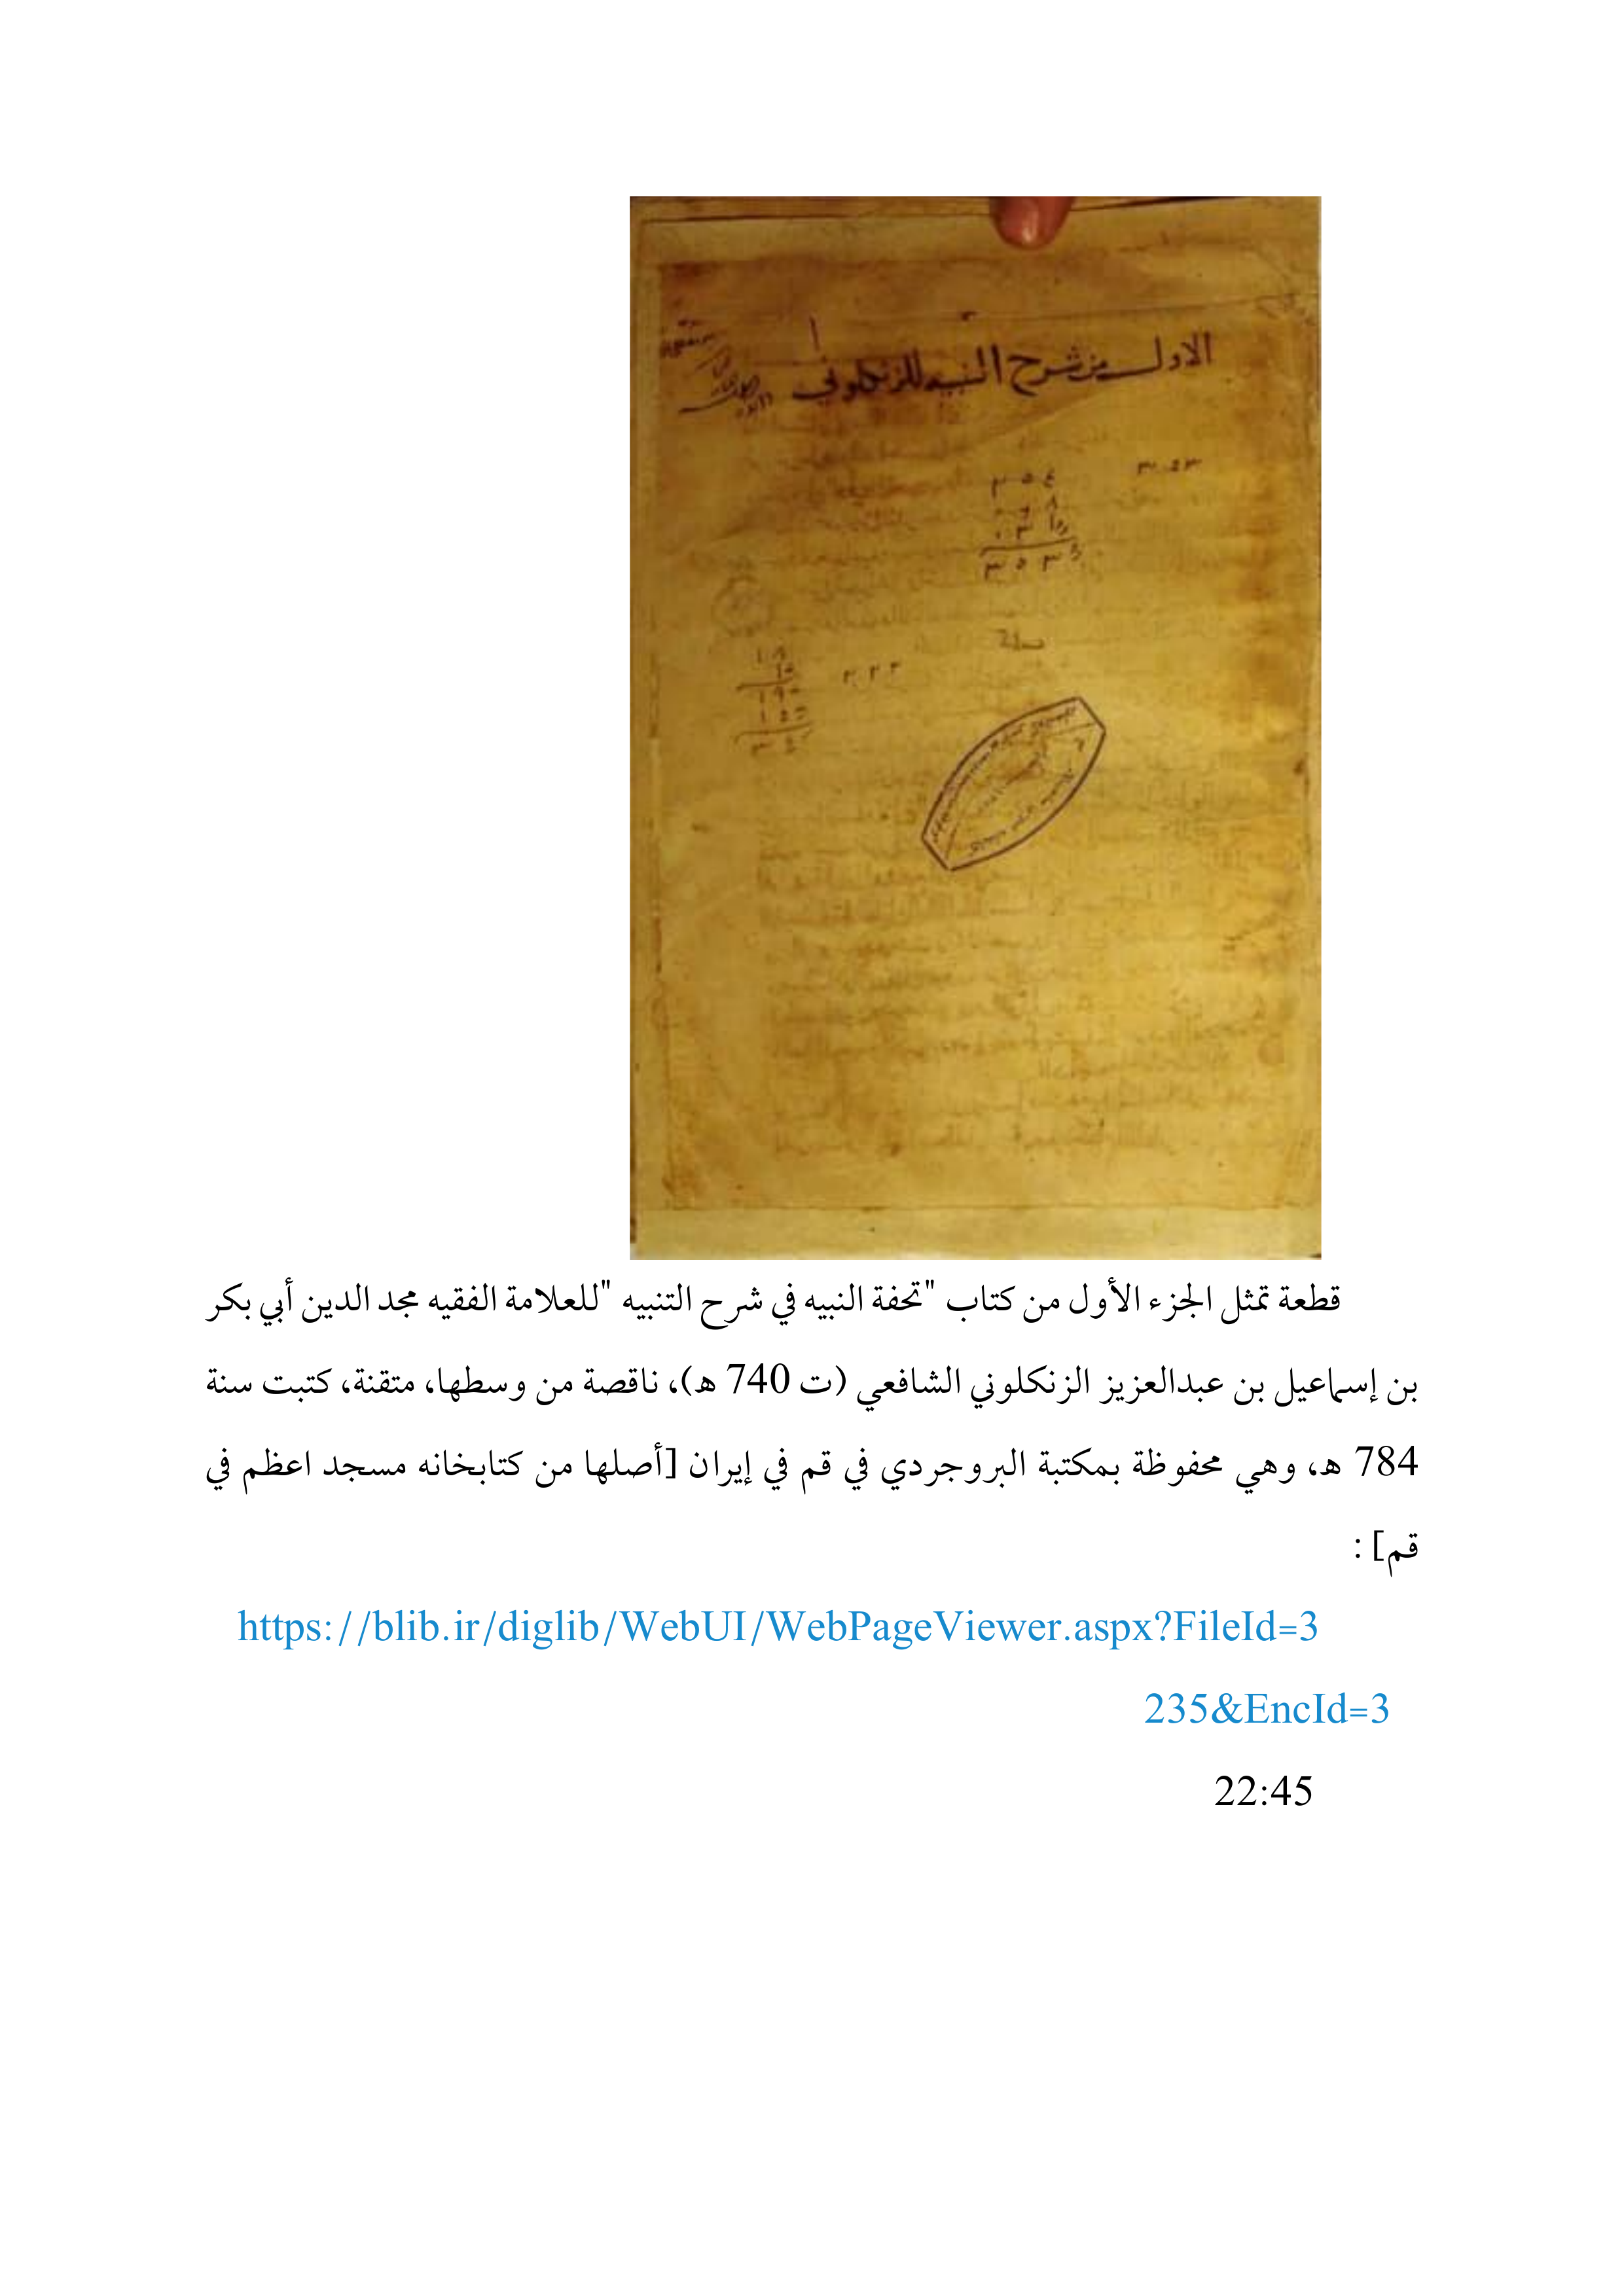 الاول من شرح التنبيه للزنكلوني
قطعة تمثل الجزء الأول من كتاب "تحفة النبيه في شرح التنبيه "للعلامة الفقيه مجد الدين أبي بكر
بن إسماعيل بن عبدالعزيز الزنكلوني الشافعي (ت 740 هـ)، ناقصة من وسطها، متقنة، كتبت سنة
784 هـ، وهي محفوظة بمكتبة البروجردي في قم في إيران [أصلها من كتابخانه مسجد اعظم في
قم] :
https://blib.ir/diglib/WebUI/WebPageViewer.aspx?FileId=3
235&EncId=3
22:45